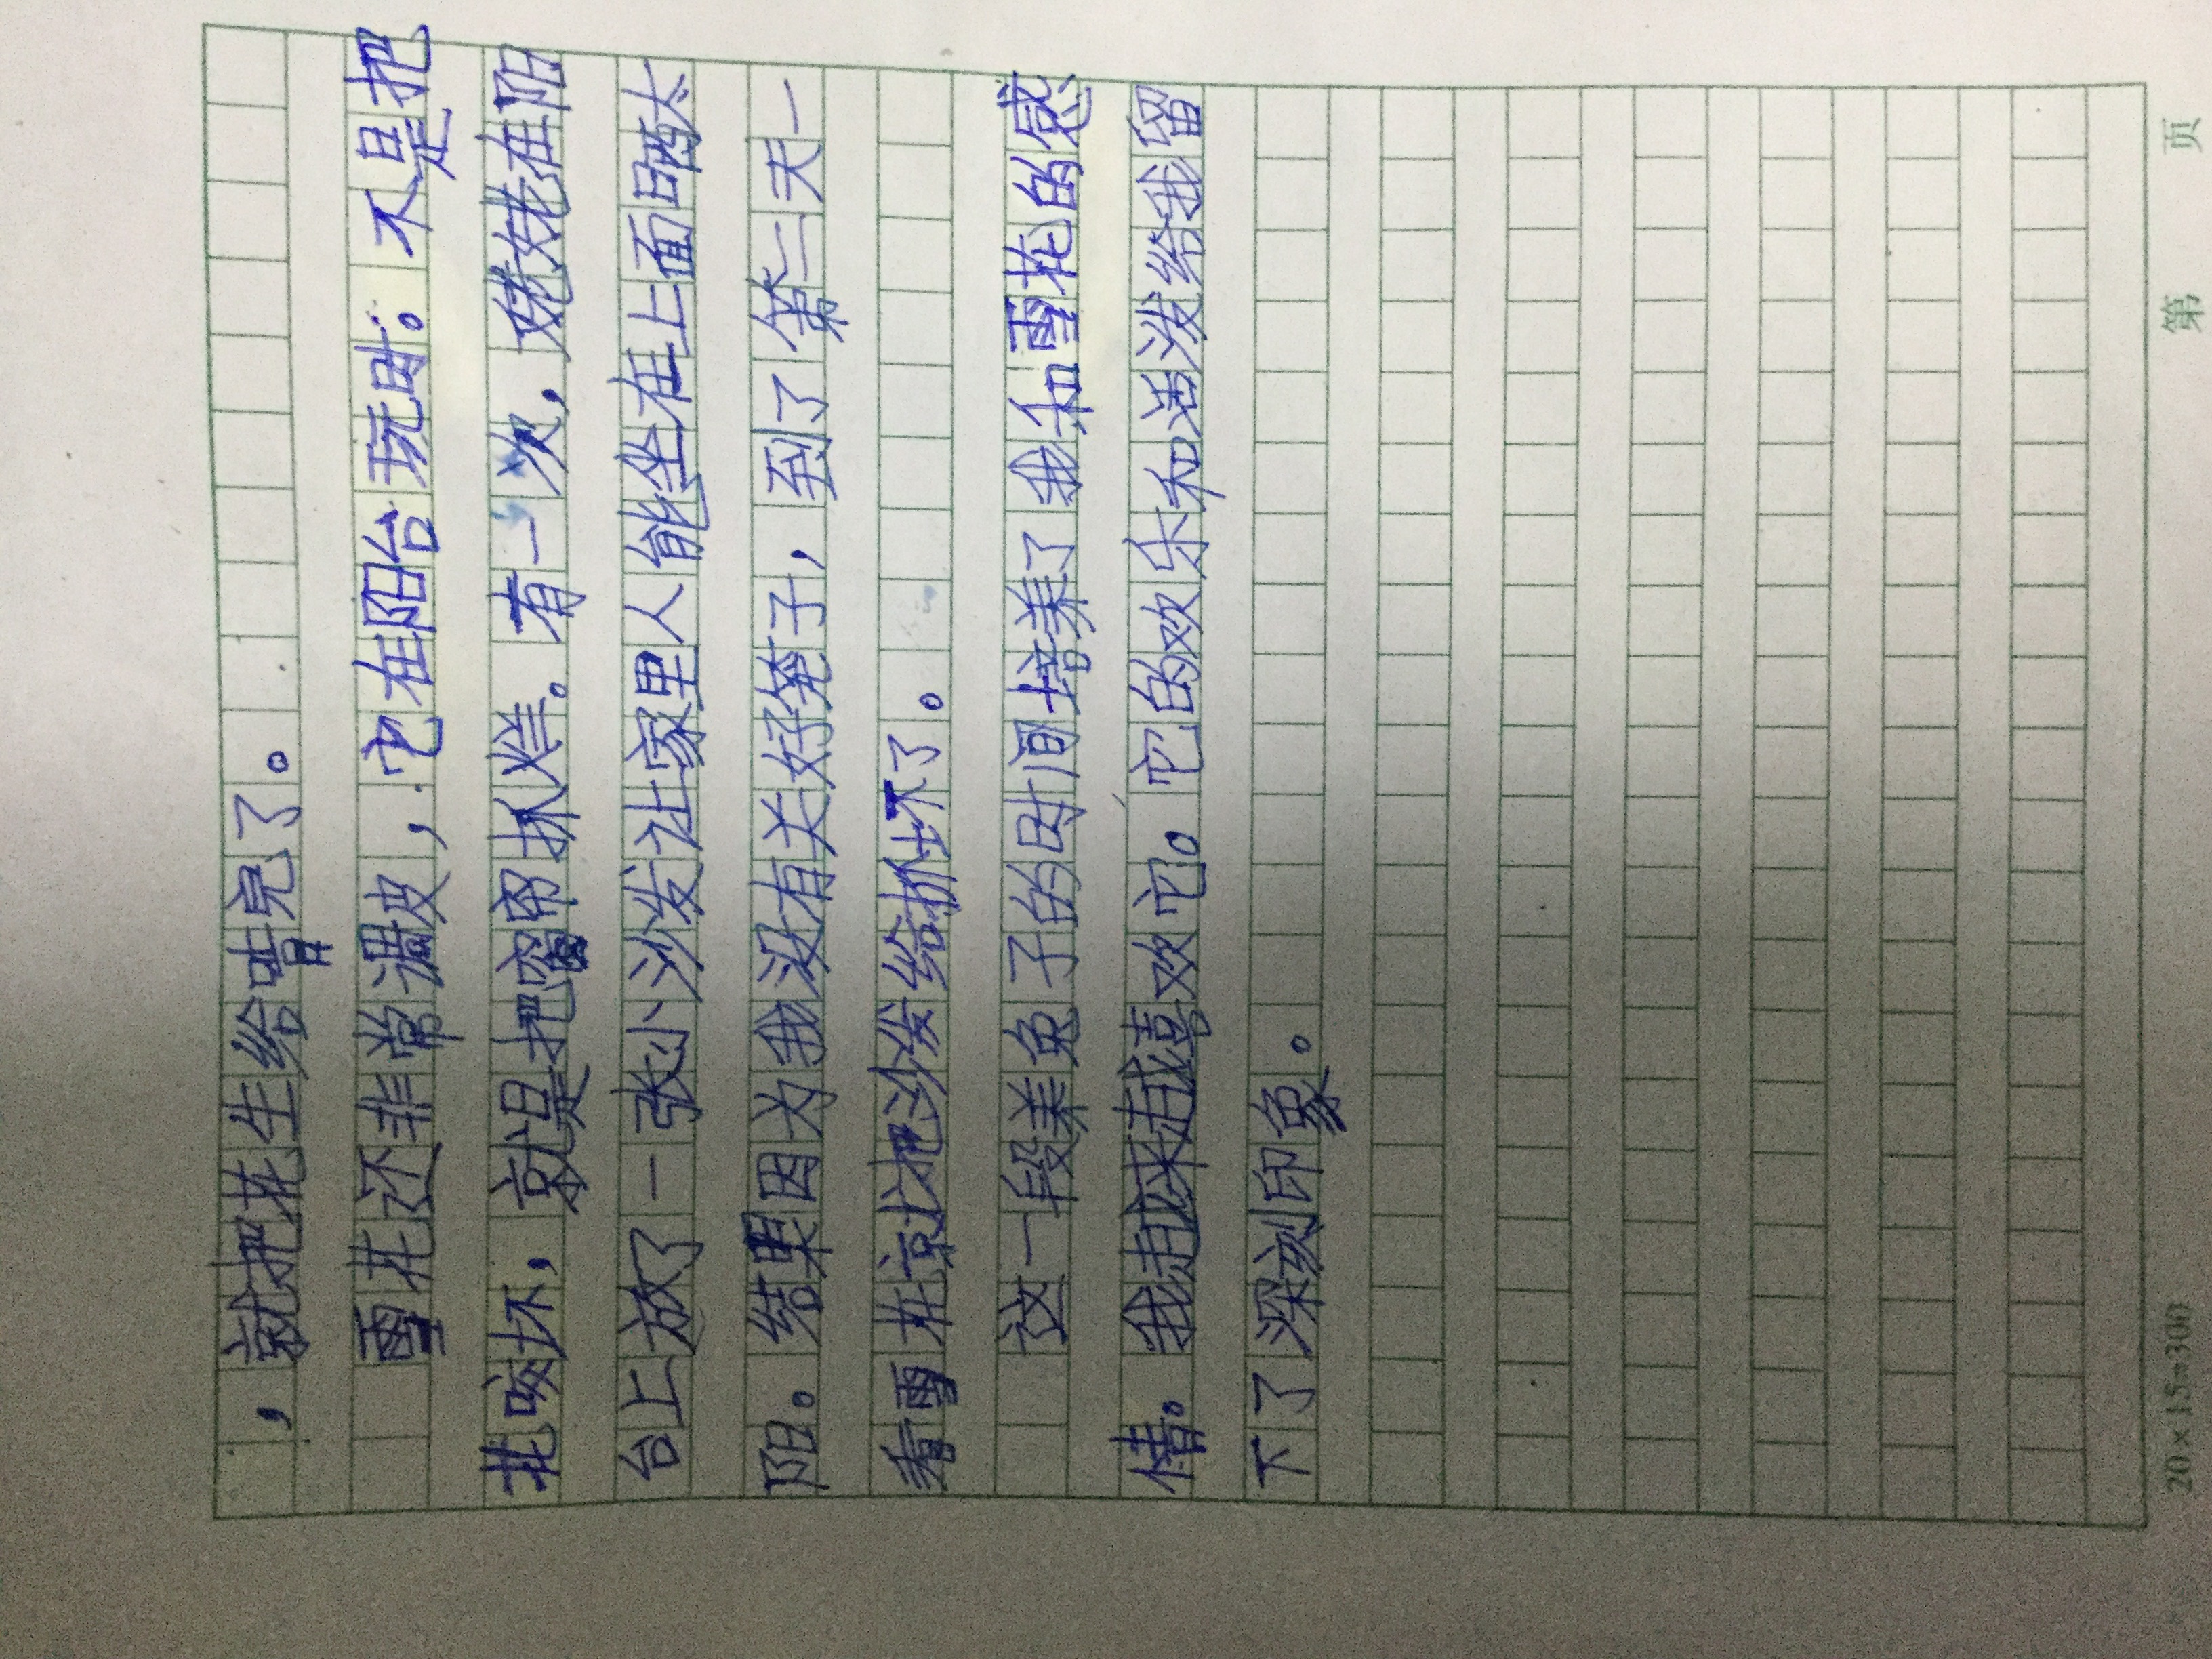 ，就把花生给啃完了。
雪花还非常调皮，它在阳台玩时。不是把
花咬坏，就是把窗帘抓烂。有一次，姥姥在阳
台上放了一张小沙发让家里人能坐在上面晒太
阳。结果因为我没有关好笼子，到了第二天一
看雪花京比把沙发给抓坏了。
这一段养兔子的时间培养了我和雪花的感
情。我越来越喜欢它。它的欢乐和活泼给我留
下了深刻印象。
20×15=300 第 页